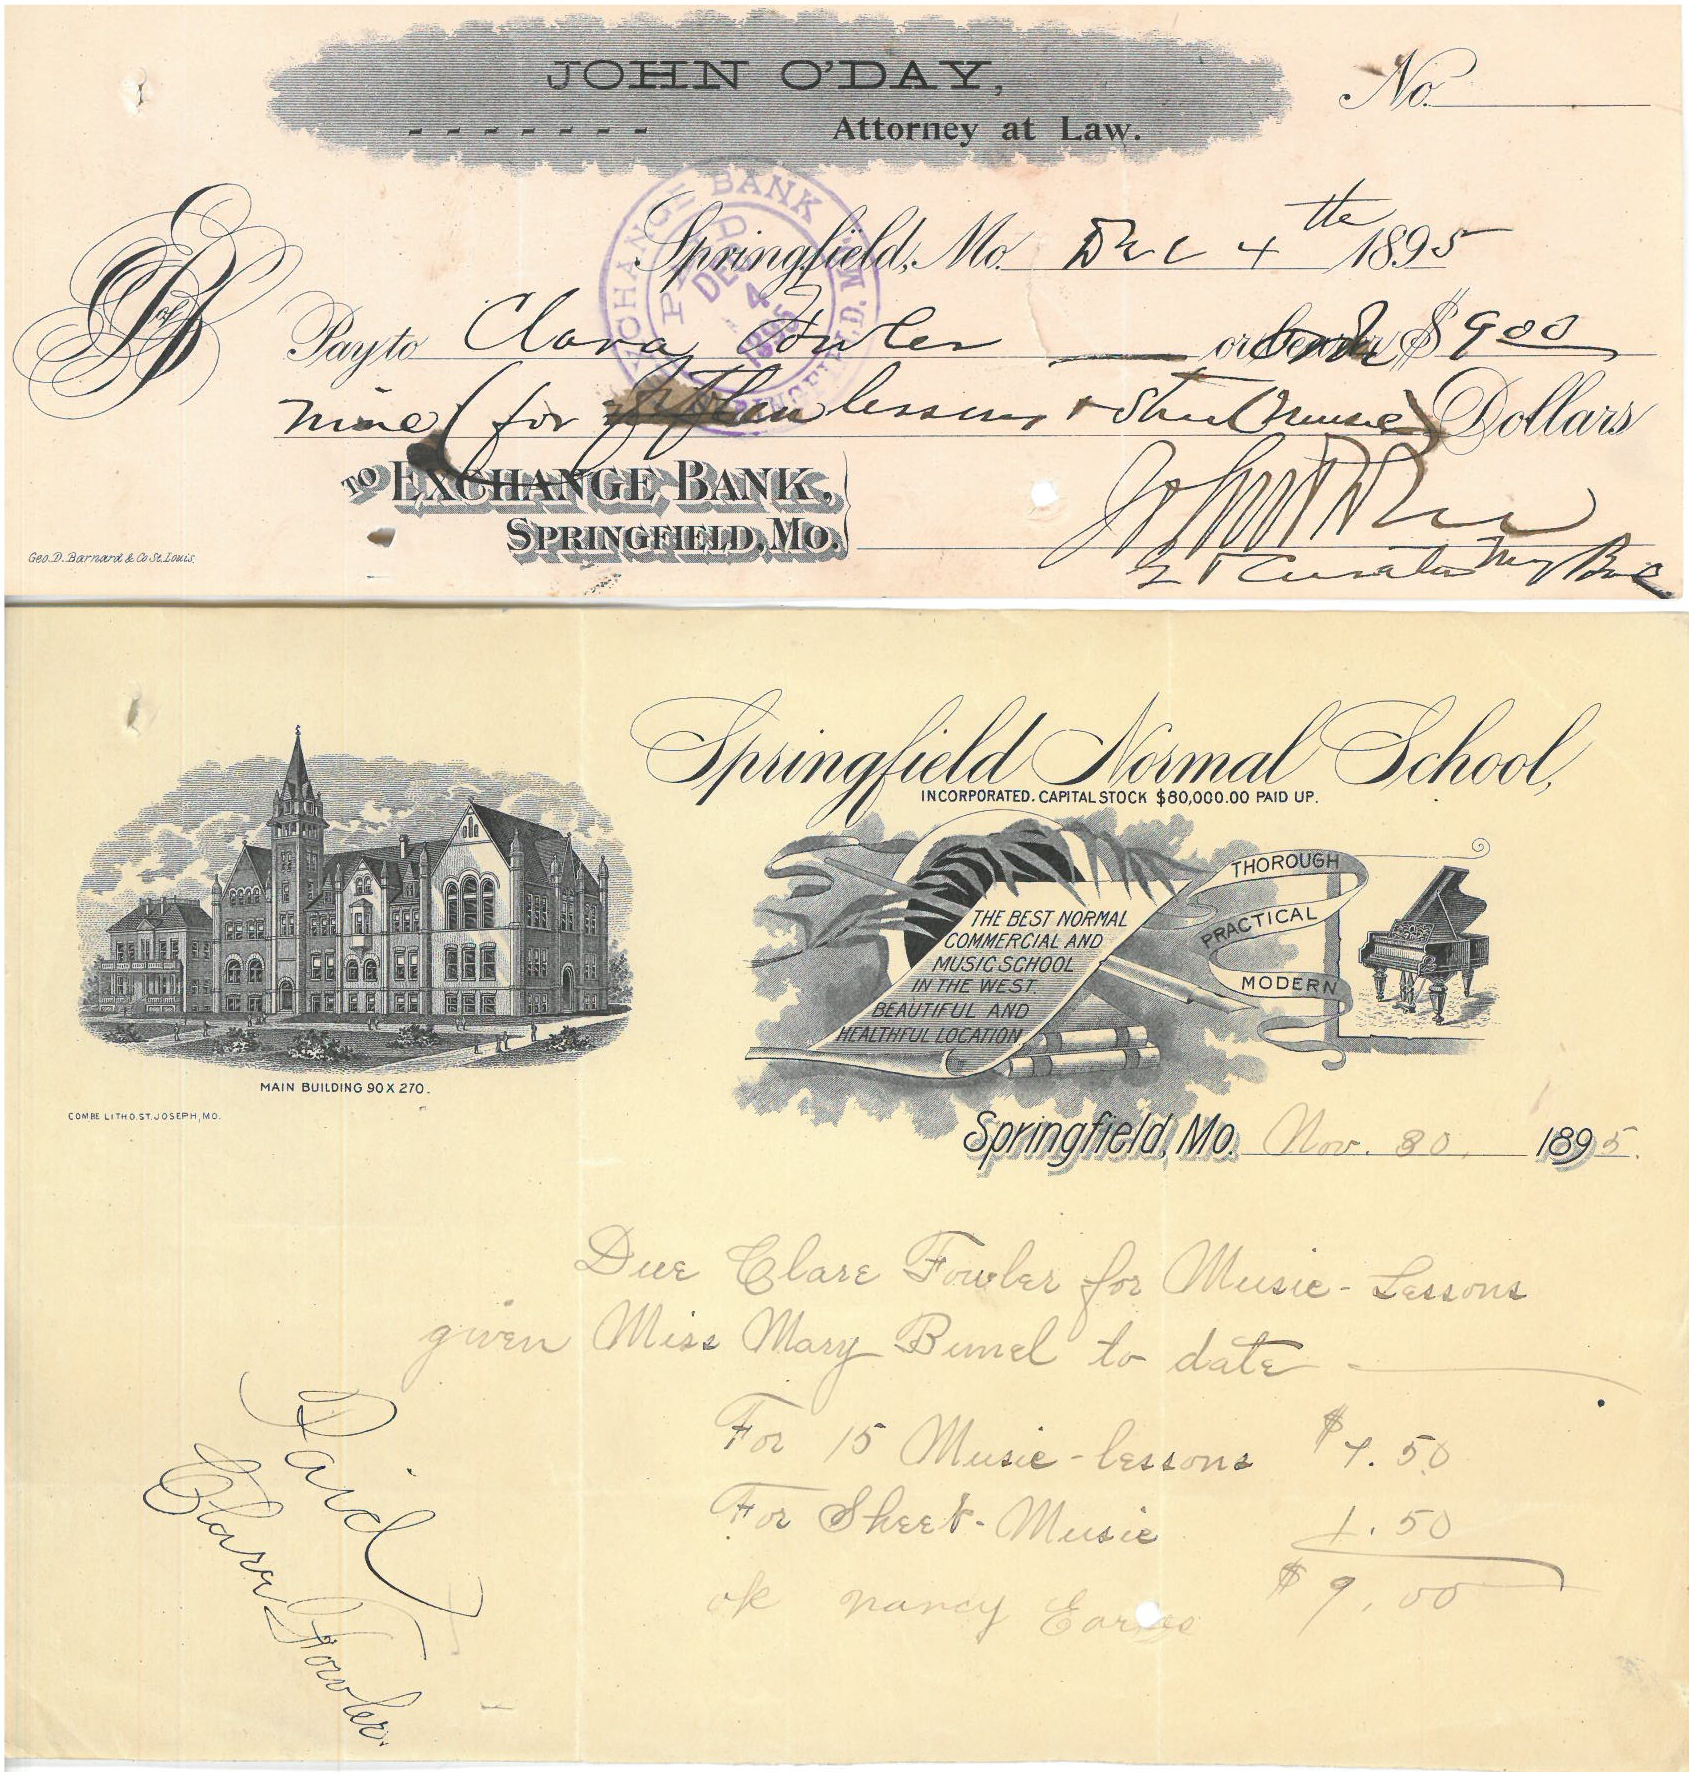 JOHN O'DAY,
Attorney at Law.
No.
Springfield, Mo. Dec 4th 1895
Pay to Clara Fowler or bearer $ 900
nine (for fifteen lessons + sheet music) Dollars
TO EXCHANGE BANK,
SPRINGFIELD, MO.
John O'Day
Geo. D. Barnard & Co St. Louis.
EXCHANGE BANK
PAID
DEC 4 1895
SPRINGFIELD, MO.
Springfield Normal School,
INCORPORATED. CAPITAL STOCK $80,000.00 PAID UP.
THE BEST NORMAL
COMMERCIAL AND
MUSIC SCHOOL
IN THE WEST.
BEAUTIFUL AND
HEALTHFUL LOCATION
THOROUGH
PRACTICAL
MODERN
MAIN BUILDING 90 X 270.
COMBE LITHO. ST. JOSEPH, MO.
Springfield, Mo. Nov. 30, 1895.
Due Clare Fowler for Music-Lessons
given Miss Mary to date
For 15 Music-lessons $7.50
For Sheet-Music 1.50
ok Nancy $9.00
Paid
Clare Fowler.